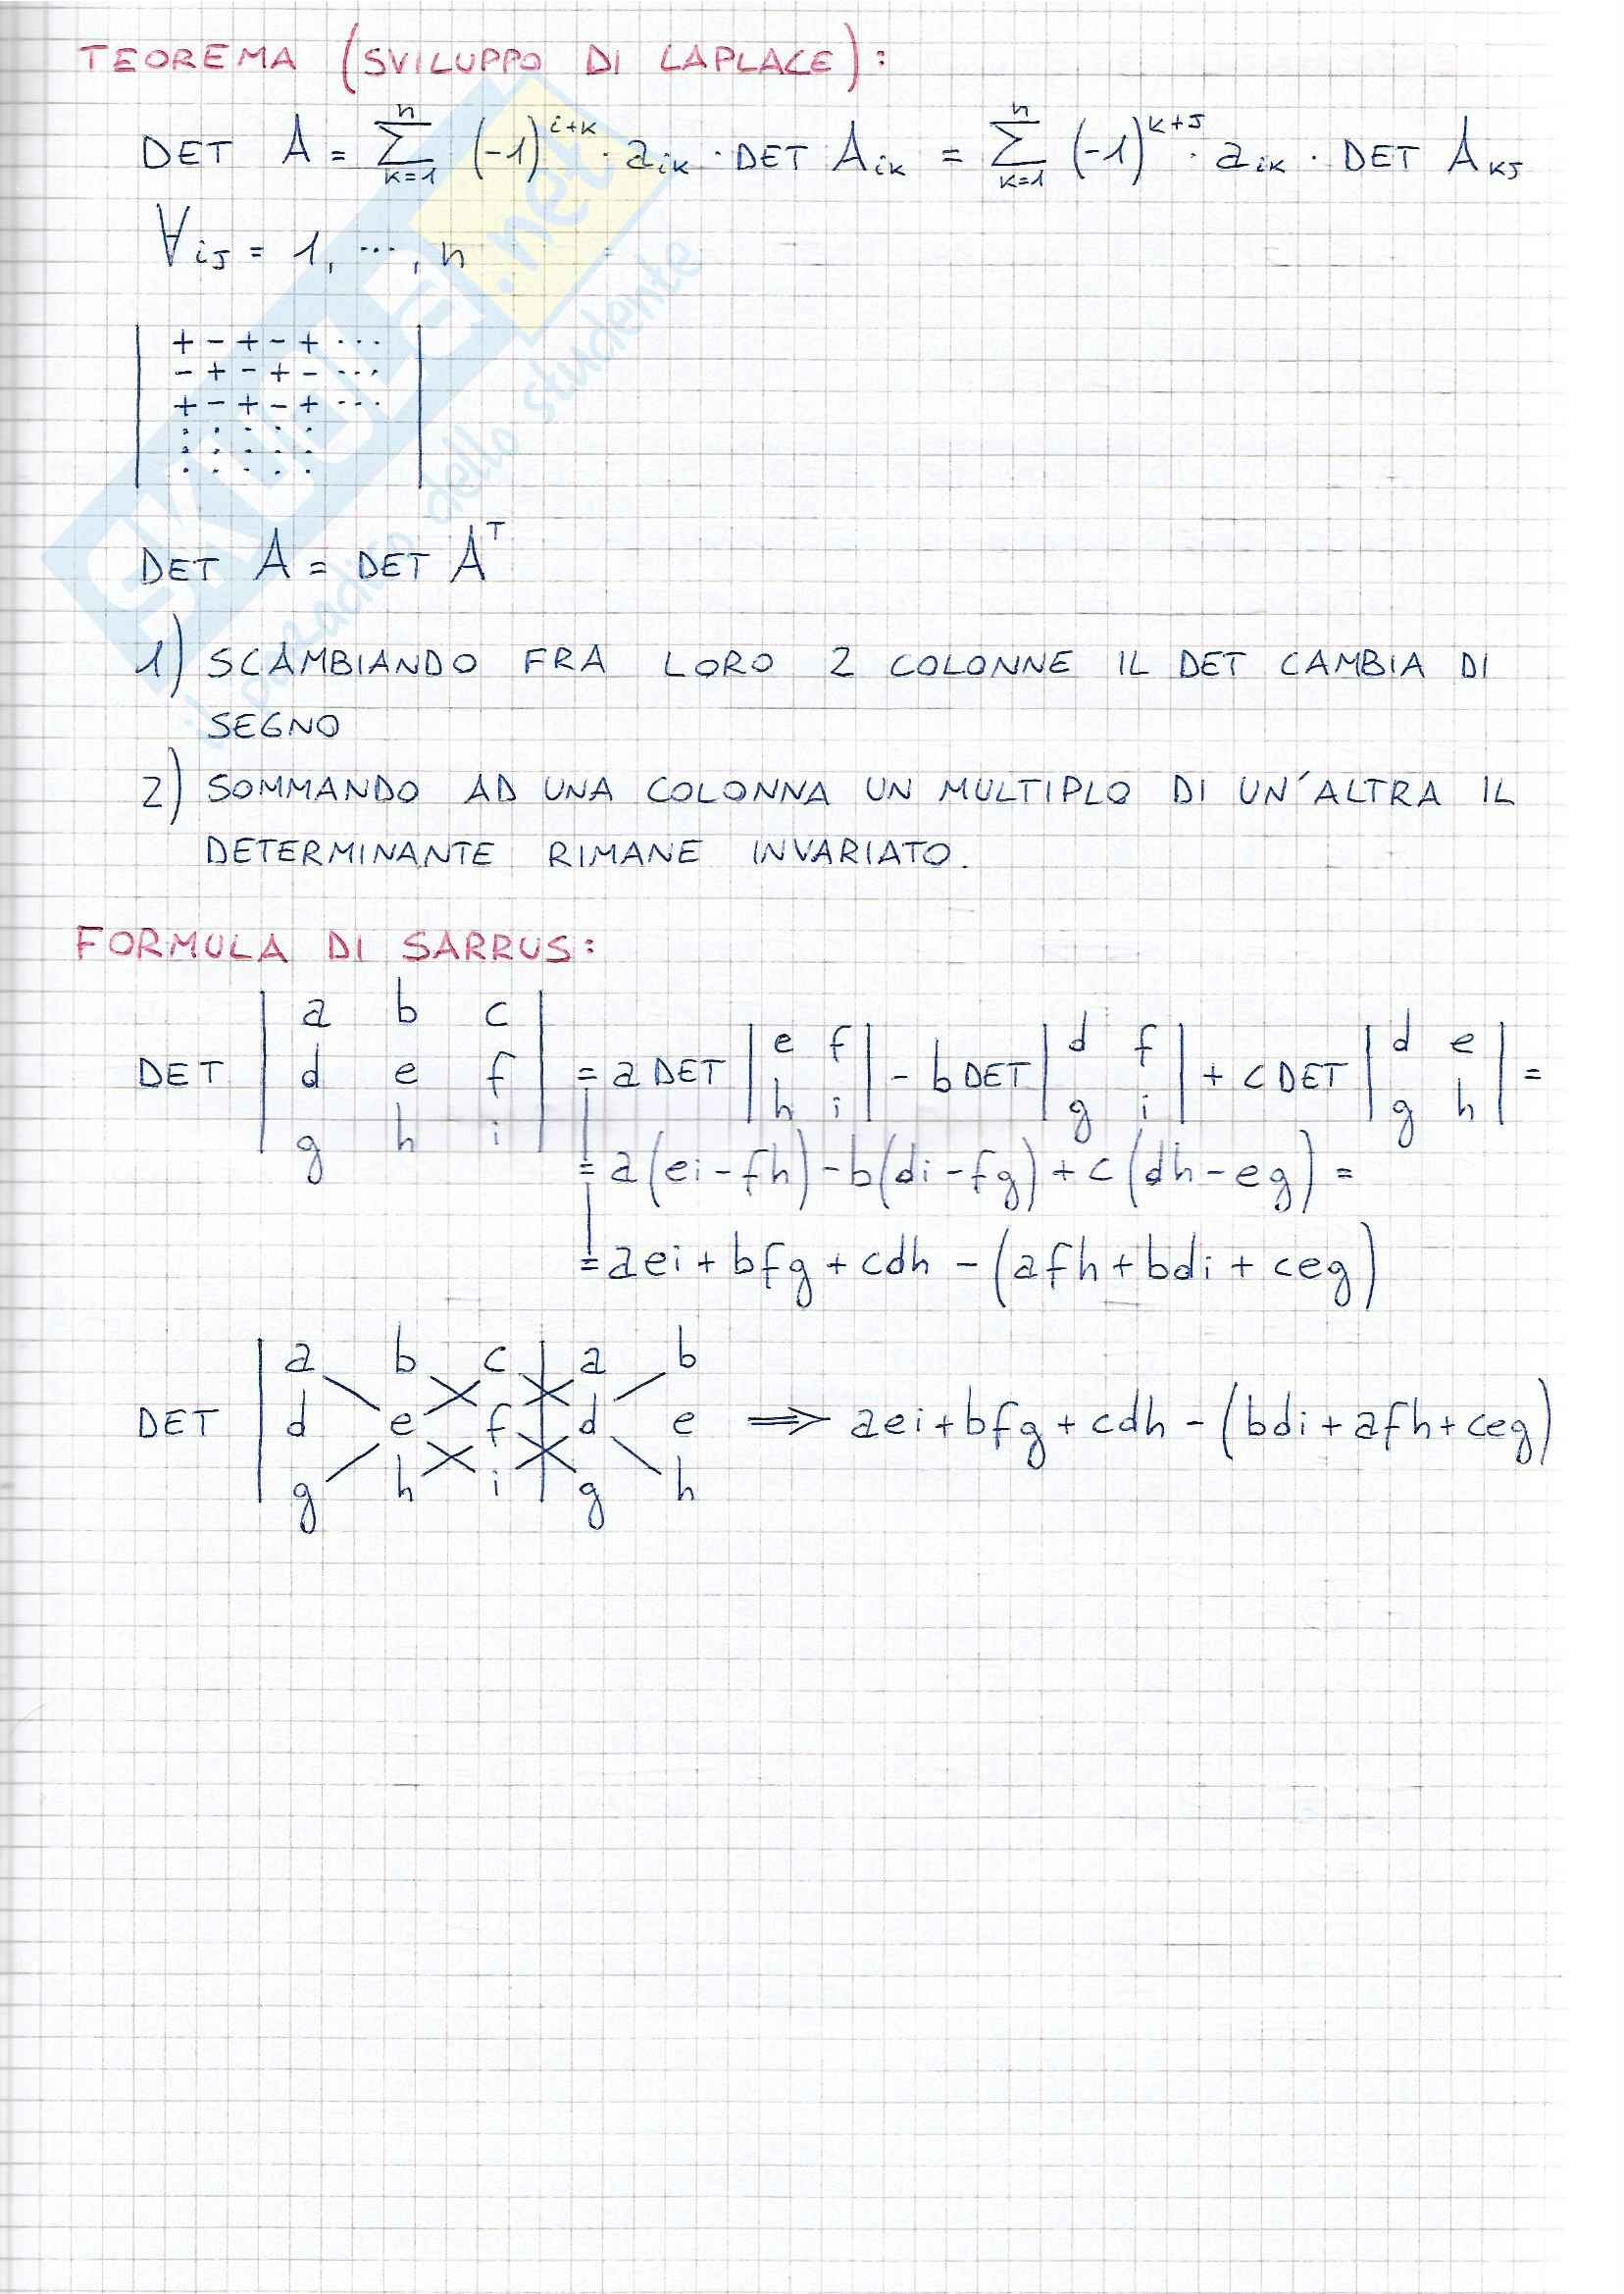 TEOREMA (SVILUPPO DI LAPLACE):
DET A = ∑_{k=1}^{n} (-1)^{i+k} · a_{ik} · DET A_{ik} = ∑_{k=1}^{n} (-1)^{k+j} · a_{ik} · DET A_{kj}
∀ij = 1, ..., n
+ - + - + ...
- + - + - ...
+ - + - + ...
DET A = DET A^T
1) SCAMBIANDO FRA LORO 2 COLONNE IL DET CAMBIA DI
SEGNO
2) SOMMANDO AD UNA COLONNA UN MULTIPLO DI UN'ALTRA IL
DETERMINANTE RIMANE INVARIATO.
FORMULA DI SARRUS:
DET | a b c ; d e f ; g h i | = a DET | e f ; h i | - b DET | d f ; g i | + c DET | d e ; g h | =
= a(ei-fh) - b(di-fg) + c(dh-eg) =
= aei + bfg + cdh - (afh + bdi + ceg)
DET | a b c | a b ; d e f | d e ; g h i | g h ⟹ aei + bfg + cdh - (bdi + afh + ceg)
SKUOLA.net
il paradiso dello studente